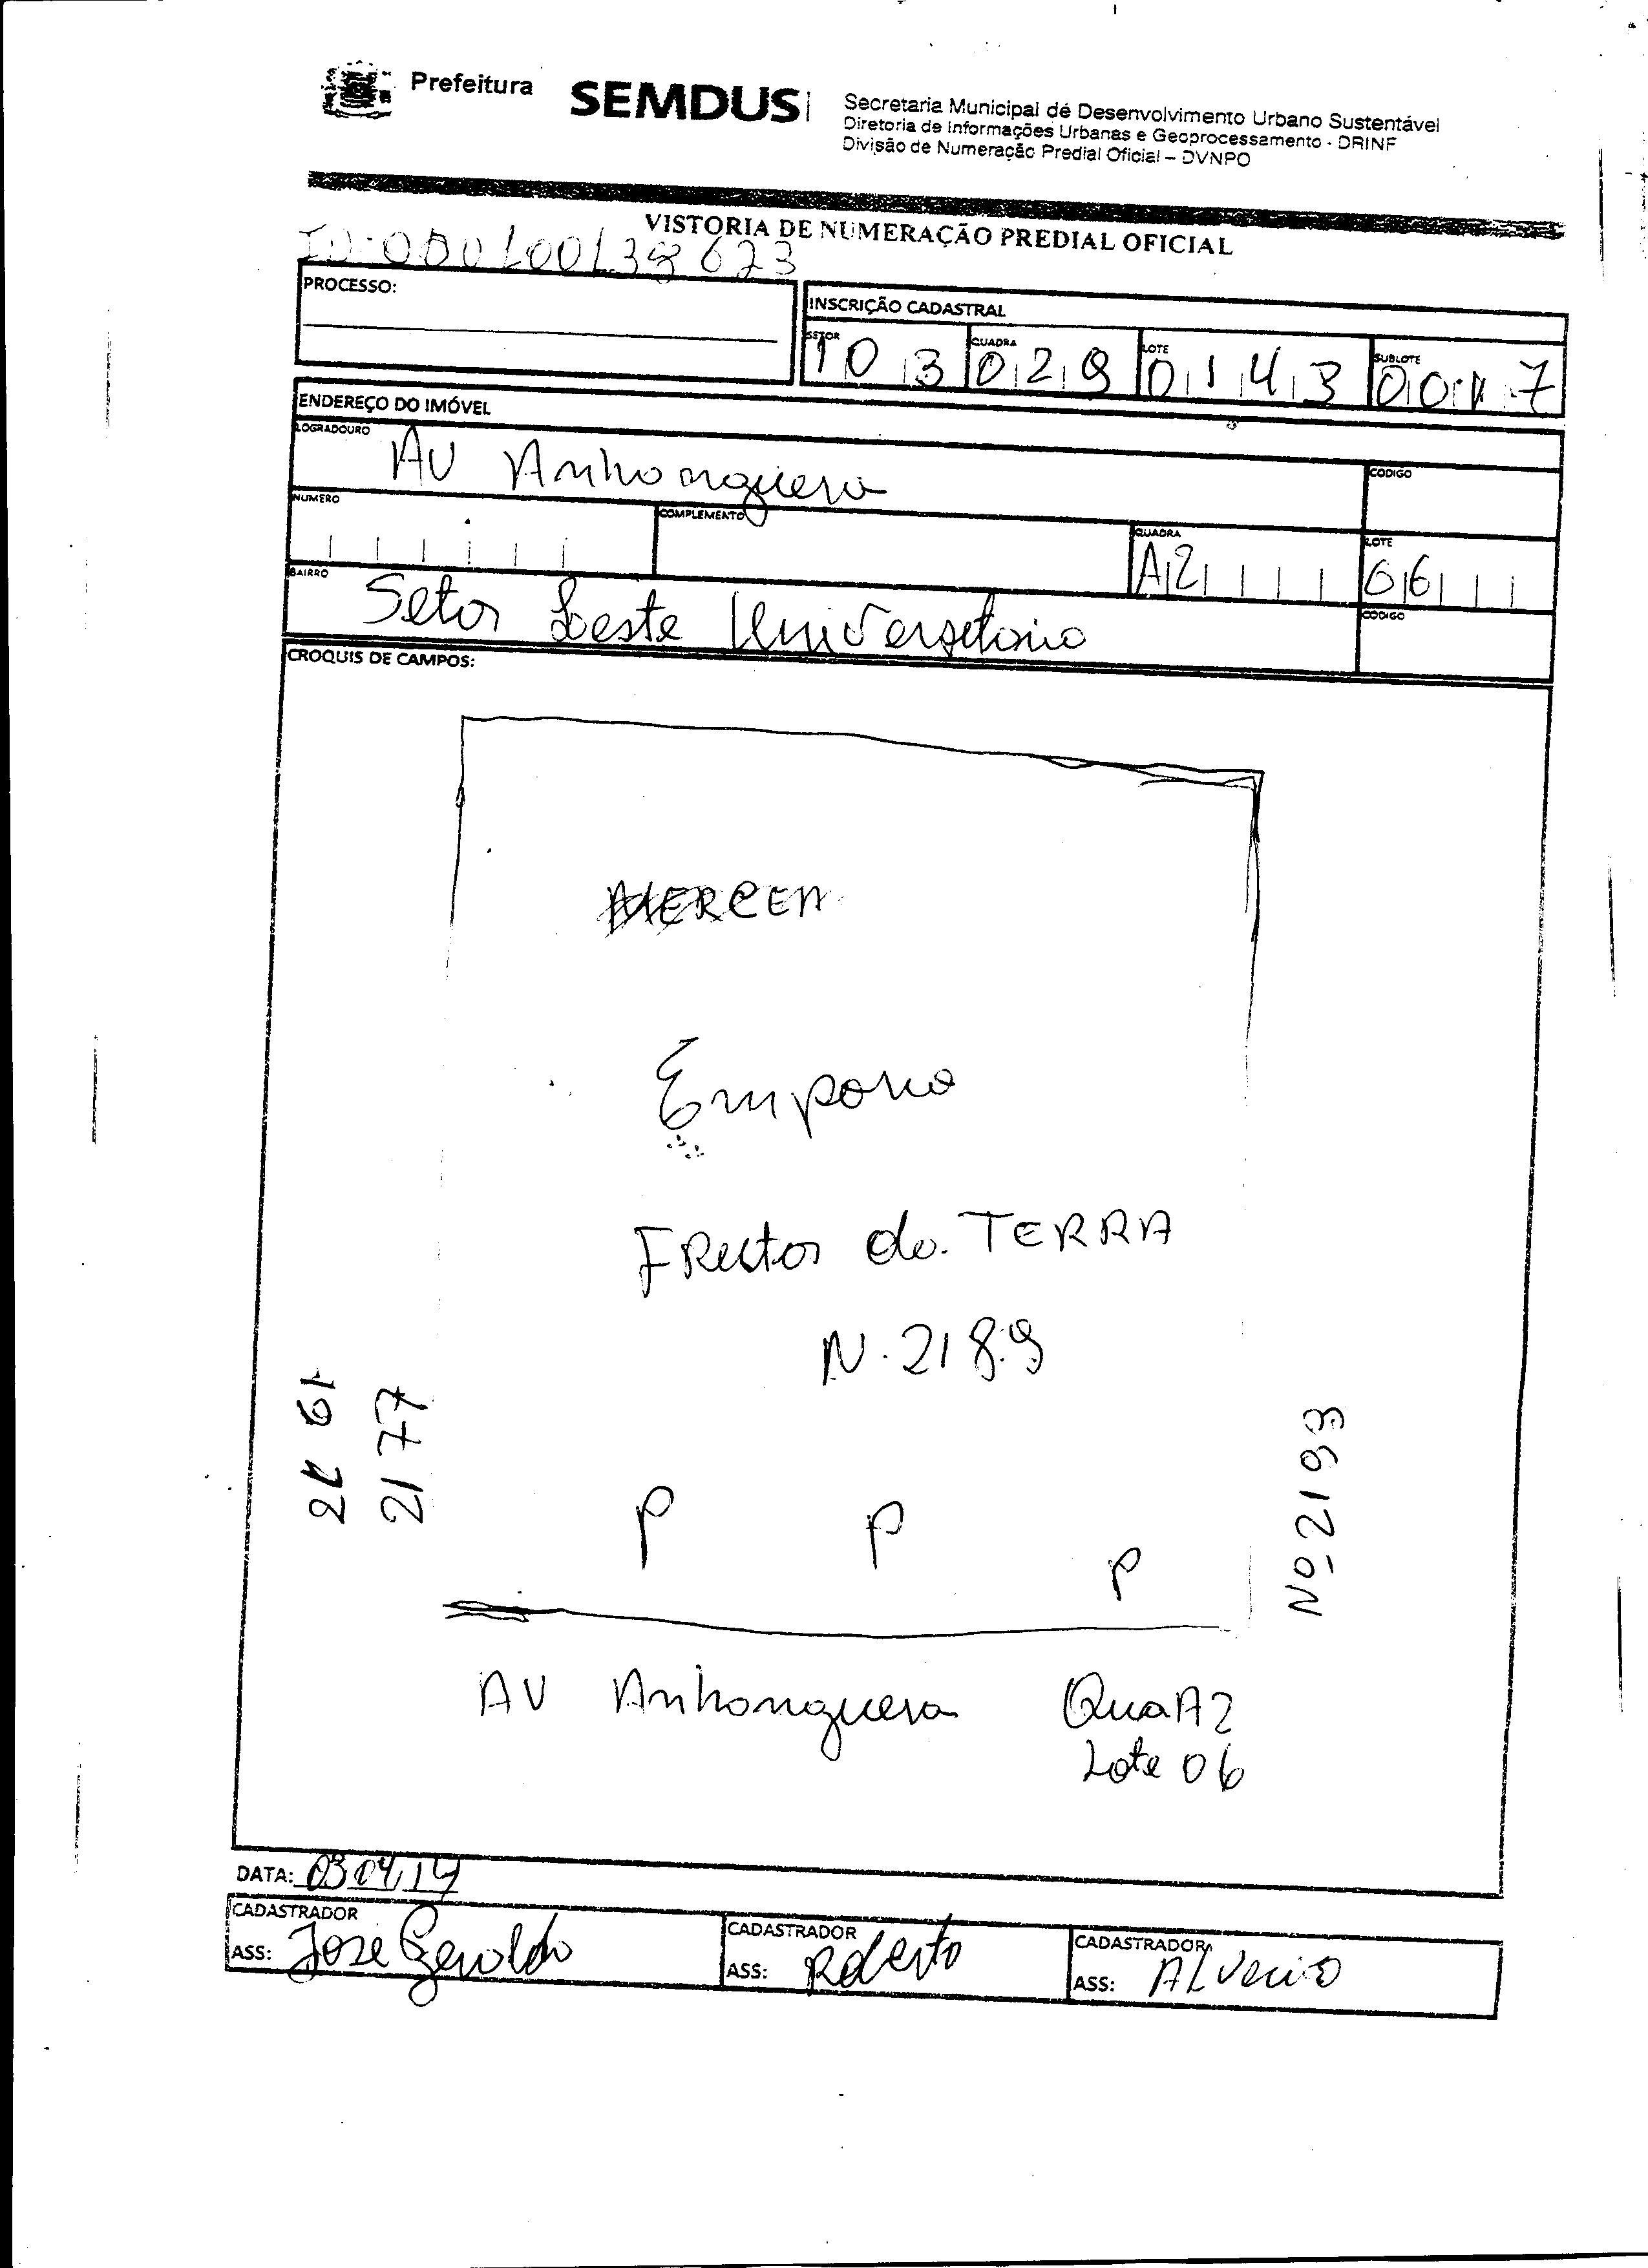 Prefeitura
SEMDUS
Secretaria Municipal de Desenvolvimento Urbano Sustentável
Diretoria de Informações Urbanas e Geoprocessamento - DRINF
Divisão de Numeração Predial Oficial – DVNPO
VISTORIA DE NUMERAÇÃO PREDIAL OFICIAL
PROCESSO:
INSCRIÇÃO CADASTRAL
SETOR QUADRA LOTE SUBLOTE
103 029 0143 0017
ENDEREÇO DO IMÓVEL
LOGRADOURO AV Anhanguera CODIGO
NUMERO COMPLEMENTO QUADRA A2 LOTE 06
BAIRRO Setor Leste Universitario CODIGO
CROQUIS DE CAMPOS:
MERCEA
Emporio
Frutos da TERRA
N. 2189
2177
Nº 2193
P P P
AV Anhanguera Qua A2
Lote 06
DATA: 03 04 14
CADASTRADOR CADASTRADOR CADASTRADOR
ASS: Jose Geraldo ASS: Roberto ASS: